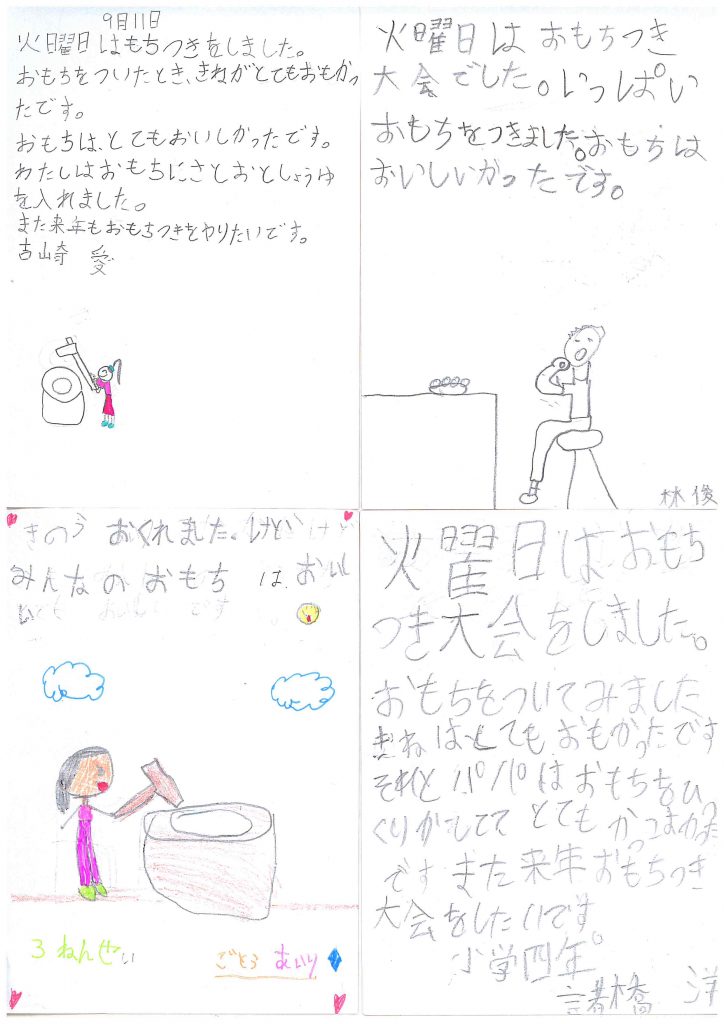 9月11日
火曜日はもちつきをしました。
おもちをついたとき、きねがとてもおもかっ
たです。
おもちは、とてもおいしかったです。
わたしはおもちにさとおとしょうゆ
を入れました。
また来年もおもちつきをやりたいです。
古山奇 愛
火曜日はおもちつき
大会でした。いっぱい
おもちをつきました。おもちは
おいしいかったです。
林俊
きのう おくれました、けど
みんなのおもち は、おいし
い
3 ねんせい
ごとう あいり
火曜日はおもち
つき大会をしました。
おもちをついてみました
きねはとてもおもかったです
それと パパはおもちをひっ
くりかしてて とても かっこ
です また来年おもちつき
大会をしたいです。
小学四年
諸橋 洋